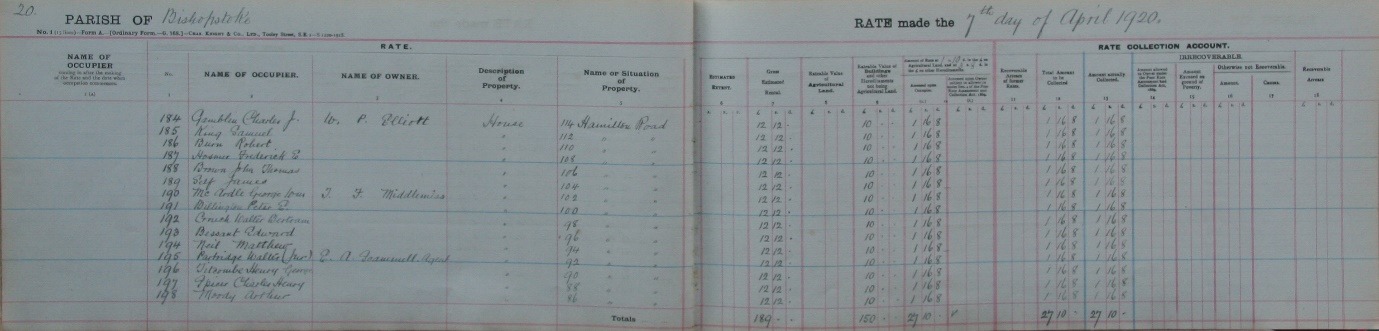 20.
PARISH OF Bishopstoke
RATE made the 7th day of April 1920.
RATE.
RATE COLLECTION ACCOUNT.
NAME OF OCCUPIER
No.
NAME OF OCCUPIER.
NAME OF OWNER.
Description of Property.
Name or Situation of Property.
Gross Estimated Rental.
Rateable Value of Agricultural Land.
Total Amount to be Collected
Amount actually Collected.
IRRECOVERABLE
Otherwise not Recoverable.
Amount.
Causes.
Recoverable Arrears
184 Gamblen Charles J. W. P. Elliott House 114 Hamilton Road 12 12 - 10 - - 1 16 8 1 16 8 1 16 8
185 King Samuel " 112 " " 12 12 - 10 - - 1 16 8 1 16 8 1 16 8
186 Burn Robert " 110 " " 12 12 - 10 - - 1 16 8 1 16 8 1 16 8
187 Frederick E " 108 " " 12 12 - 10 - - 1 16 8 1 16 8 1 16 8
188 Brown John Thomas " 106 " " 12 12 - 10 - - 1 16 8 1 16 8 1 16 8
189 James " 104 " " 12 12 - 10 - - 1 16 8 1 16 8 1 16 8
190 Mc Ardle George Wm T. F. Middlemiss " 102 " " 12 12 - 10 - - 1 16 8 1 16 8 1 16 8
191 Peter E. " 100 " " 12 12 - 10 - - 1 16 8 1 16 8 1 16 8
192 Crouch Walter Bertram " 98 " " 12 12 - 10 - - 1 16 8 1 16 8 1 16 8
193 Bessant Edward " 96 " " 12 12 - 10 - - 1 16 8 1 16 8 1 16 8
194 Neil Matthew " 94 " " 12 12 - 10 - - 1 16 8 1 16 8 1 16 8
195 Partridge Walter (Jnr) E. A. Agent " 92 " " 12 12 - 10 - - 1 16 8 1 16 8 1 16 8
196 Titcombe Henry George " 90 " " 12 12 - 10 - - 1 16 8 1 16 8 1 16 8
197 Charles Henry " 88 " " 12 12 - 10 - - 1 16 8 1 16 8 1 16 8
198 Moody Arthur " 86 " " 12 12 - 10 - - 1 16 8 1 16 8 1 16 8
Totals 189 - - 150 - - 27 10 - 27 10 - 27 10 -